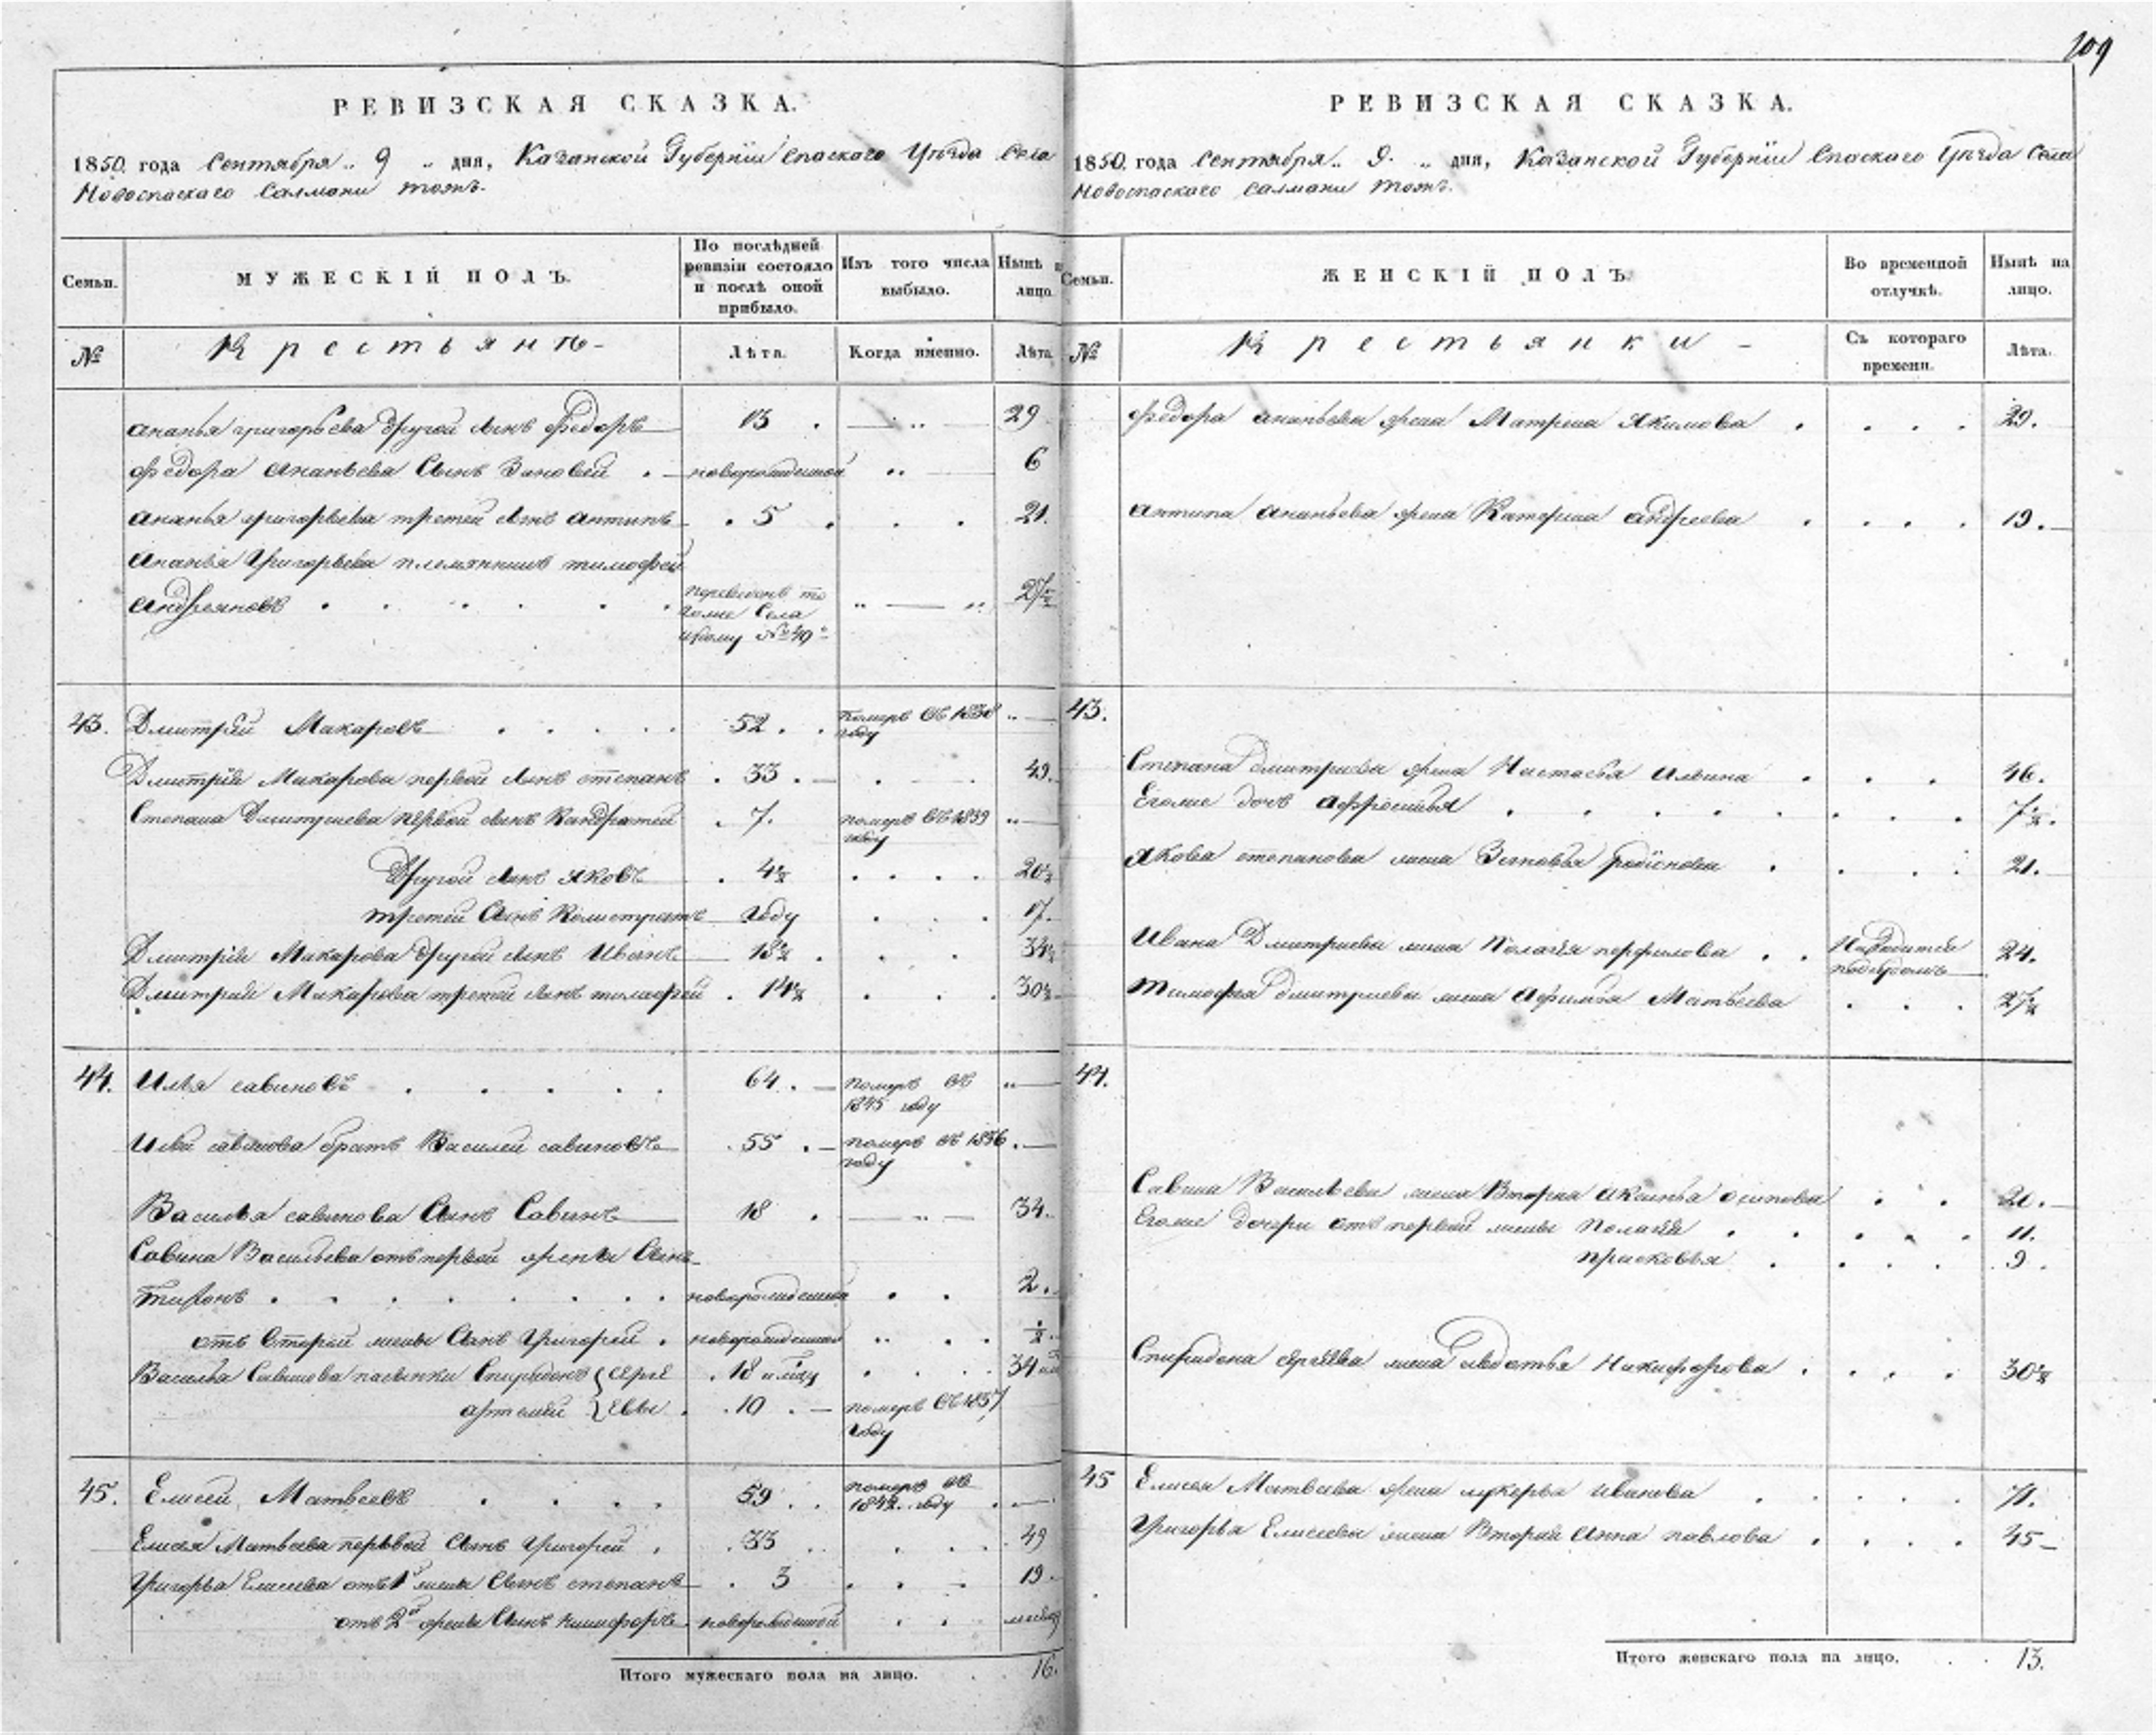 109
РЕВИЗСКАЯ СКАЗКА.
1850. года Сентября „ 9 „ дня, Казанской Губернïи Спаскаго Уѣзда Села
Новоспаскаго Салманы тожъ.
Семьи.
МУЖЕСКІЙ ПОЛЪ.
По послѣдней ревизіи состояло и послѣ оной прибыло.
Изъ того числа выбыло.
Нынѣ лицо.
№
Крестьянъ
Лѣта.
Когда именно.
Лѣта
ананья григорьева другой сынъ федоръ 13 29
федора ананьева сынъ Зиновей новорожденной 6
ананья григорьева третей сынъ антипъ 5 21.
ананья Григорьева племянникъ тимофей
андреяновъ
43. Дмитрей Макаровъ 52. померъ въ 1838 году
Дмитрïя Макарова первой сынъ степанъ 33. 49.
Степана Дмитриева первой сынъ Кондратей 7. померъ въ 1839 году
Другой сынъ яковъ 4½ 20½
третей сынъ Калистратъ году 17.
Дмитрïя Макарова другой сынъ Иванъ 18½ 34½
Дмитрия Макарова третей сынъ тимофей 14½ 30½
44. Илья савиновъ 64. померъ въ 1845 году
Ильи савинова братъ Василей савиновъ 55. померъ въ 1836 году
Василья савинова Сынъ Савинъ 18 34.
Савина Васильева отъ первой жены Сынъ
Тихонъ новорожденной 2.
отъ второй жены Сынъ Григорей новорожденной ½
Василья Савинова пасынки Спиридонъ 18 34
артемей 10 померъ въ 1837 году
45. Елисей Матвеевъ 59 померъ въ 1842 году
Елисея Матвеева первой Сынъ Григорей 33 49
Григорья Елисеева отъ 1й жены Сынъ степанъ 3 19.
отъ 2й жены Сынъ никифоръ новорожденной
Итого мужескаго пола на лицо. 16.
РЕВИЗСКАЯ СКАЗКА.
1850. года Сентября „ 9. „ дня, Казанской Губернïи Спаскаго Уѣзда Села
Новоспаскаго Салманы тожъ.
Семьи.
ЖЕНСКІЙ ПОЛЪ.
Во временной отлучкѣ.
Нынѣ на лицо.
№
Крестьянки
Съ котораго времени.
Лѣта.
федора ананьева жена Матрена Якимова 29.
антипа ананьева жена Катерина андреева 19.
43.
Степана Дмитриева жена Настасья Ильина 46.
Егоже дочь афросинья 7½.
якова степанова жена Зиновья родïонова 21.
Ивана Дмитриева жена Пелагея перфилова 24.
Тимофея Дмитриева жена афимья Матвеева 27½
44.
Савина Васильева жена Вторая аксинья осипова 20.
Егоже дочери отъ первой жены Пелагея 11.
прасковья 9.
Спиридона сергеева жена авдотья Никифорова 30½
45 Елисея Матвеева жена лукерья иванова 71.
Григорья Елисеева жена Вторая анна павлова 45
Итого женскаго пола на лицо. 13.